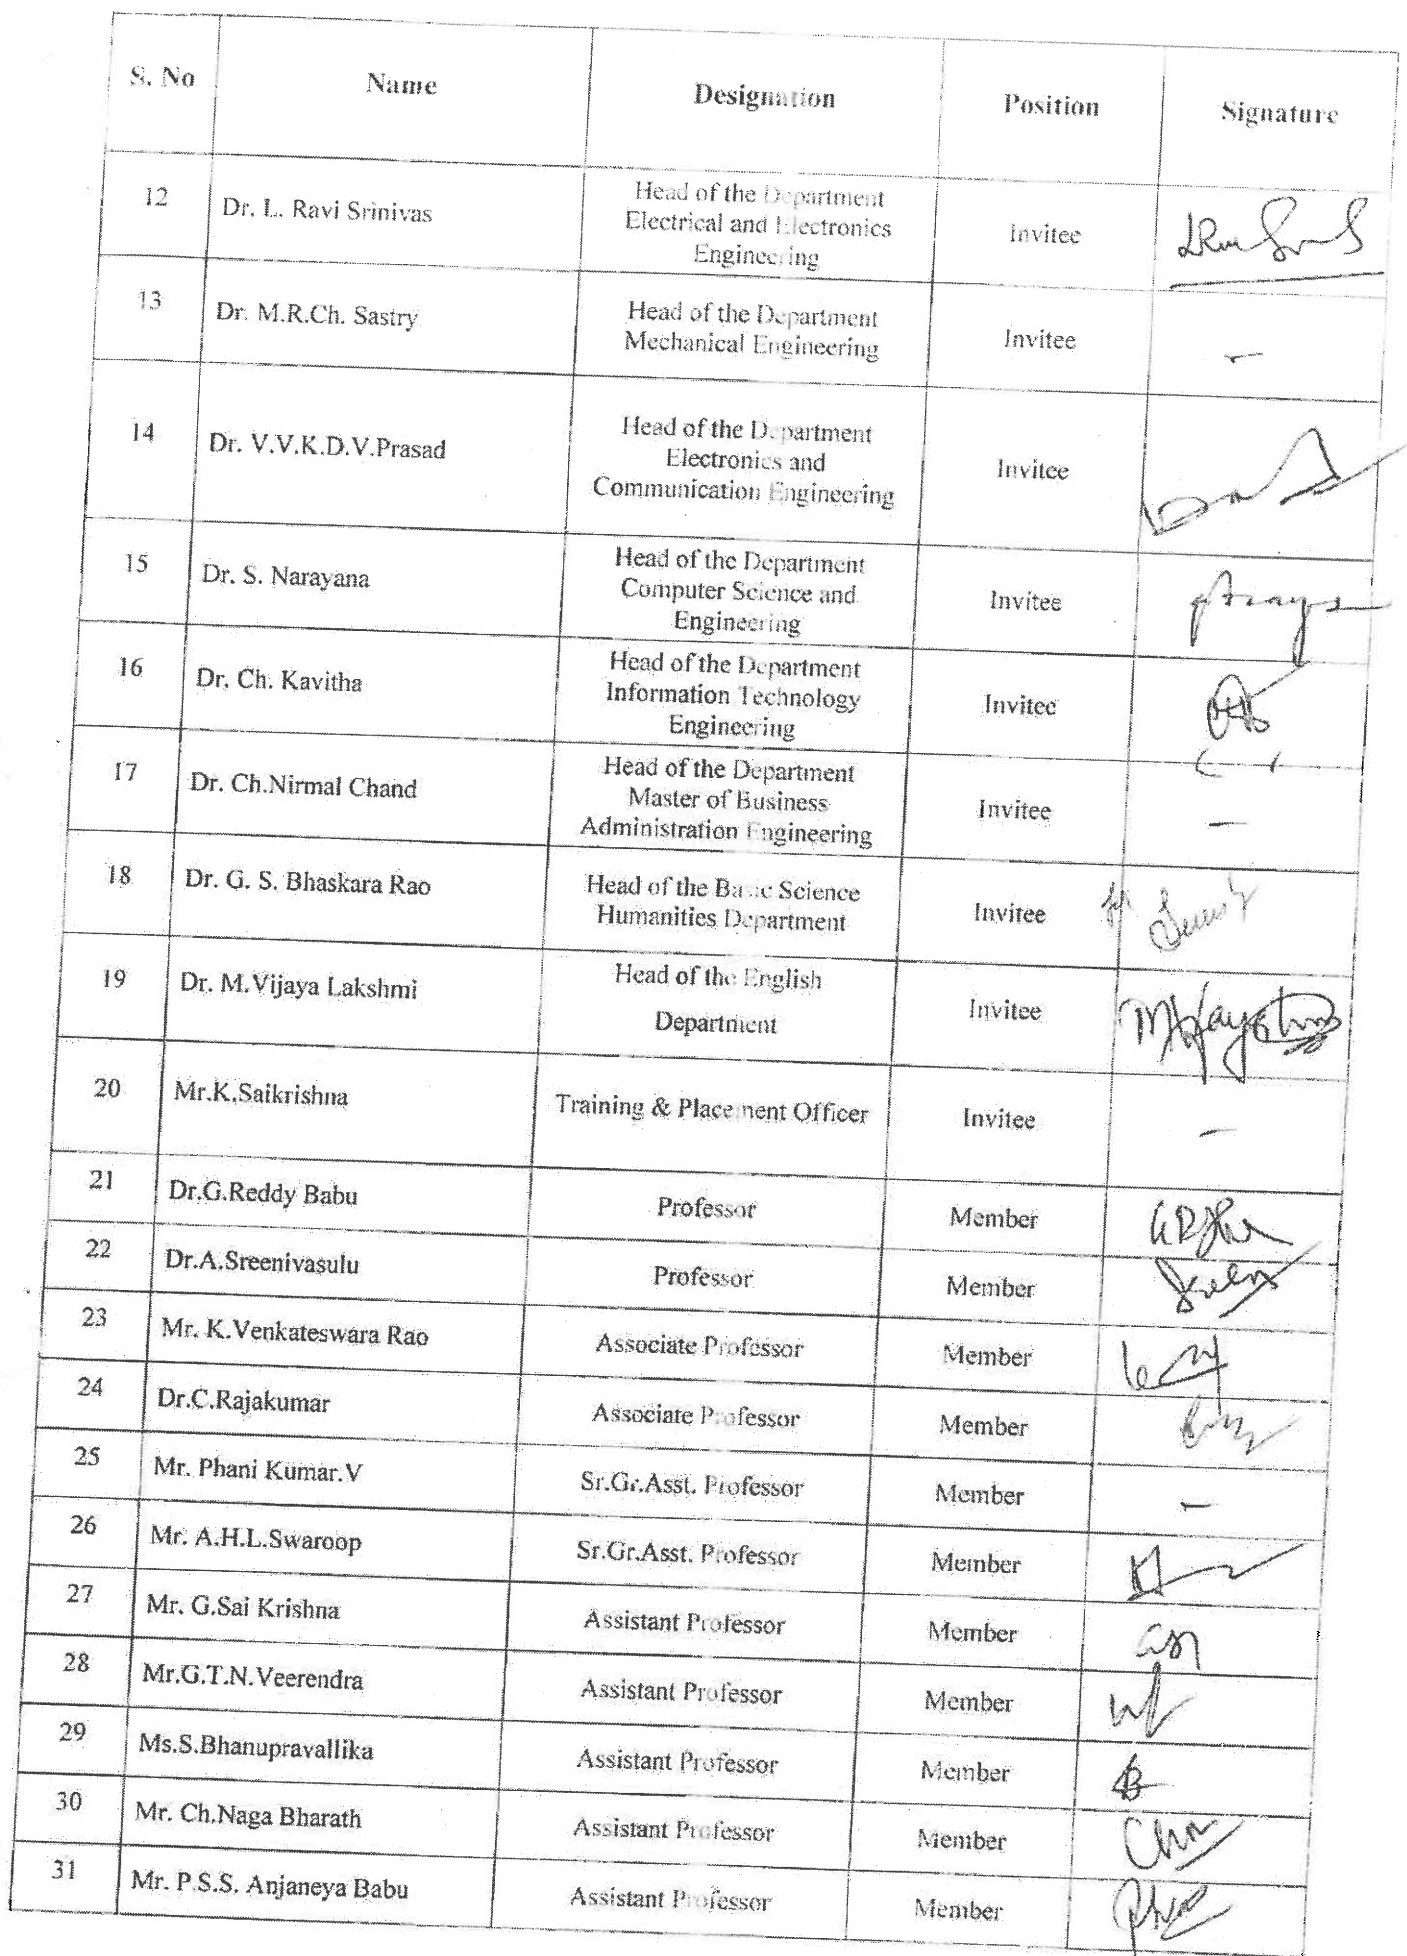 S. No Name Designation Position Signature
12 Dr. L. Ravi Srinivas Head of the Department
Electrical and Electronics
Engineering Invitee
13 Dr. M.R.Ch. Sastry Head of the Department
Mechanical Engineering Invitee -
14 Dr. V.V.K.D.V.Prasad Head of the Department
Electronics and
Communication Engineering Invitee
15 Dr. S. Narayana Head of the Department
Computer Science and
Engineering Invitee
16 Dr. Ch. Kavitha Head of the Department
Information Technology
Engineering Invitee
17 Dr. Ch.Nirmal Chand Head of the Department
Master of Business
Administration Engineering Invitee -
18 Dr. G. S. Bhaskara Rao Head of the Basic Science
Humanities Department Invitee
19 Dr. M.Vijaya Lakshmi Head of the English
Department Invitee
20 Mr.K.Saikrishna Training & Placement Officer Invitee -
21 Dr.G.Reddy Babu Professor Member
22 Dr.A.Sreenivasulu Professor Member
23 Mr. K.Venkateswara Rao Associate Professor Member
24 Dr.C.Rajakumar Associate Professor Member
25 Mr. Phani Kumar.V Sr.Gr.Asst. Professor Member -
26 Mr. A.H.L.Swaroop Sr.Gr.Asst. Professor Member
27 Mr. G.Sai Krishna Assistant Professor Member
28 Mr.G.T.N.Veerendra Assistant Professor Member
29 Ms.S.Bhanupravallika Assistant Professor Member
30 Mr. Ch.Naga Bharath Assistant Professor Member
31 Mr. P.S.S. Anjaneya Babu Assistant Professor Member